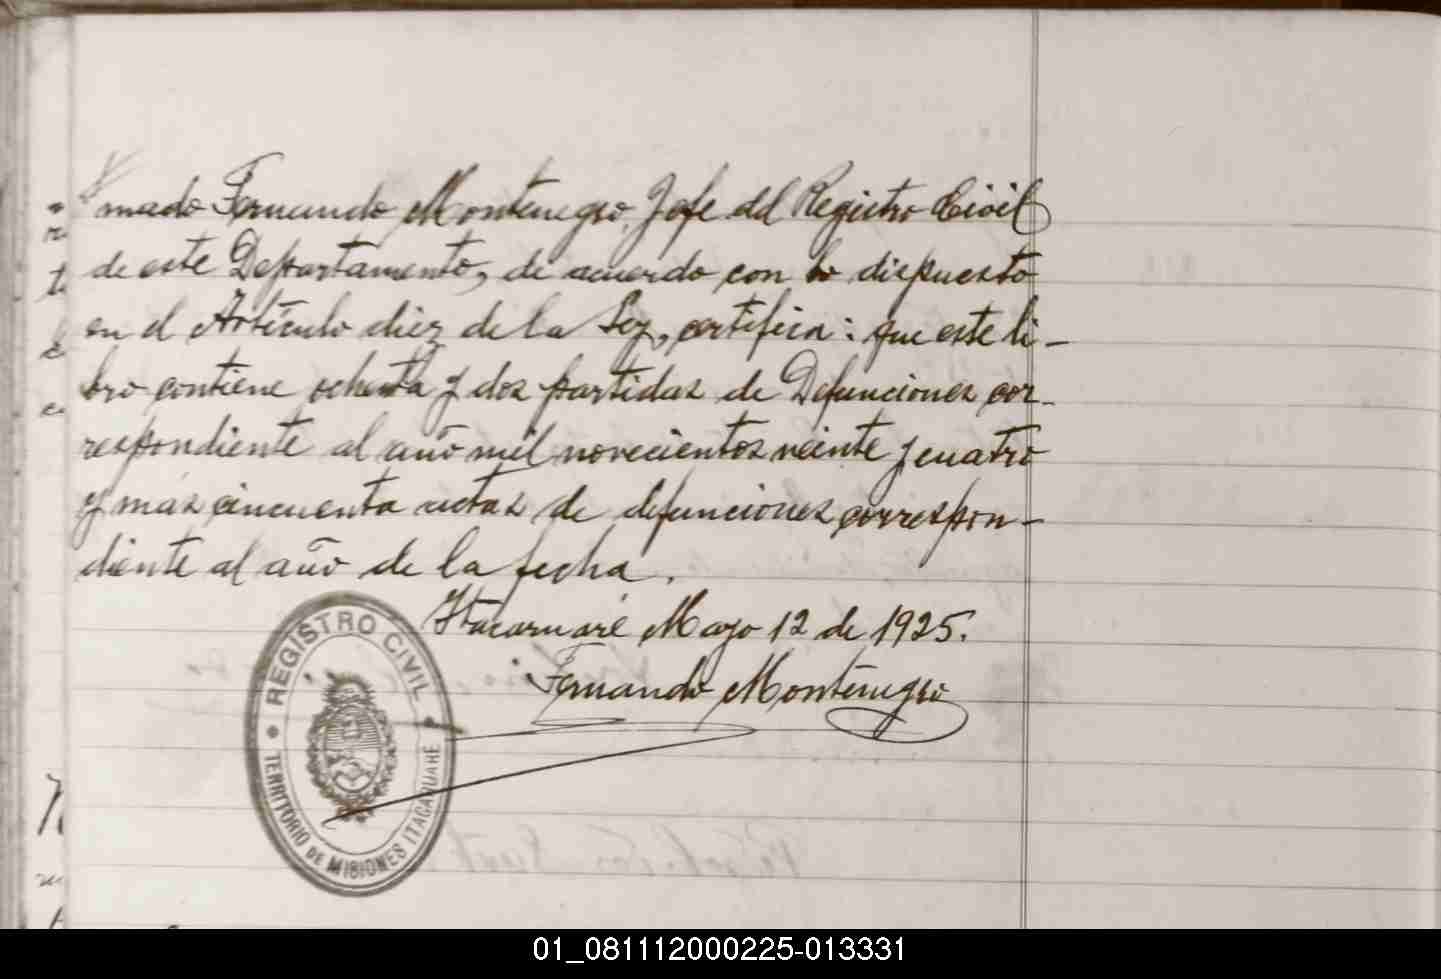 mado Fernando Montenegro, Jefe del Registro Civil
de este Departamento, de acuerdo con lo dispuesto
en el Artículo diez de la Ley, certifica: que este li-
bro contiene ochenta y dos partidas de Defunciones cor-
respondiente al año mil novecientos veinte y cuatro
y mas cincuenta actas de defunciones correspon-
diente al año de la fecha.
Itacaruaré Mayo 12 de 1925.
Fernando Montenegro
REGISTRO CIVIL
TERRITORIO DE MISIONES ITACARUARÉ
01_081112000225-013331